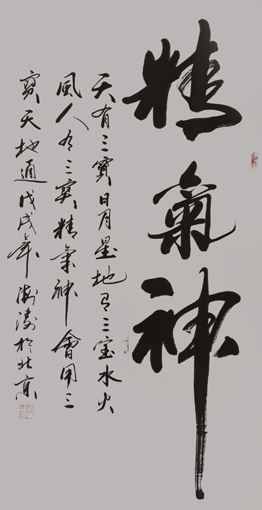 精氣神
天有三寶日月星地有三宝水火
風人有三寶精氣神會用三
寶天地通戊戌年於北京